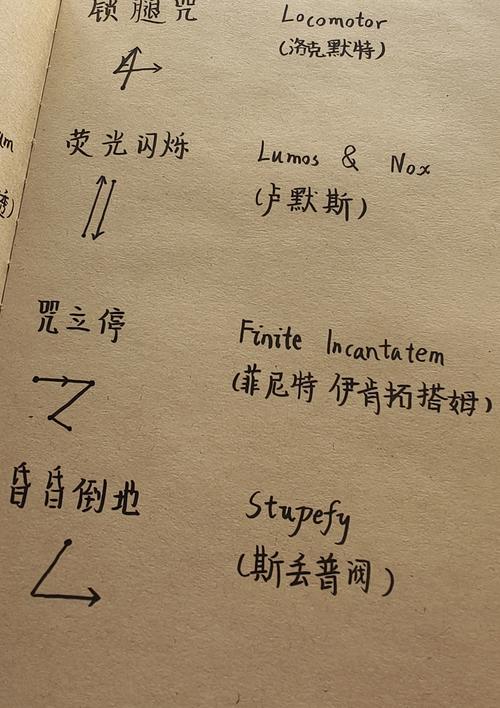 锁腿咒 Locomotor
(洛克默特)
荧光闪烁 Lumos & Nox
(卢默斯)
咒立停 Finite Incantatem
(菲尼特 伊肯拓搭姆)
昏昏倒地 Stupefy
(斯丢普阀)